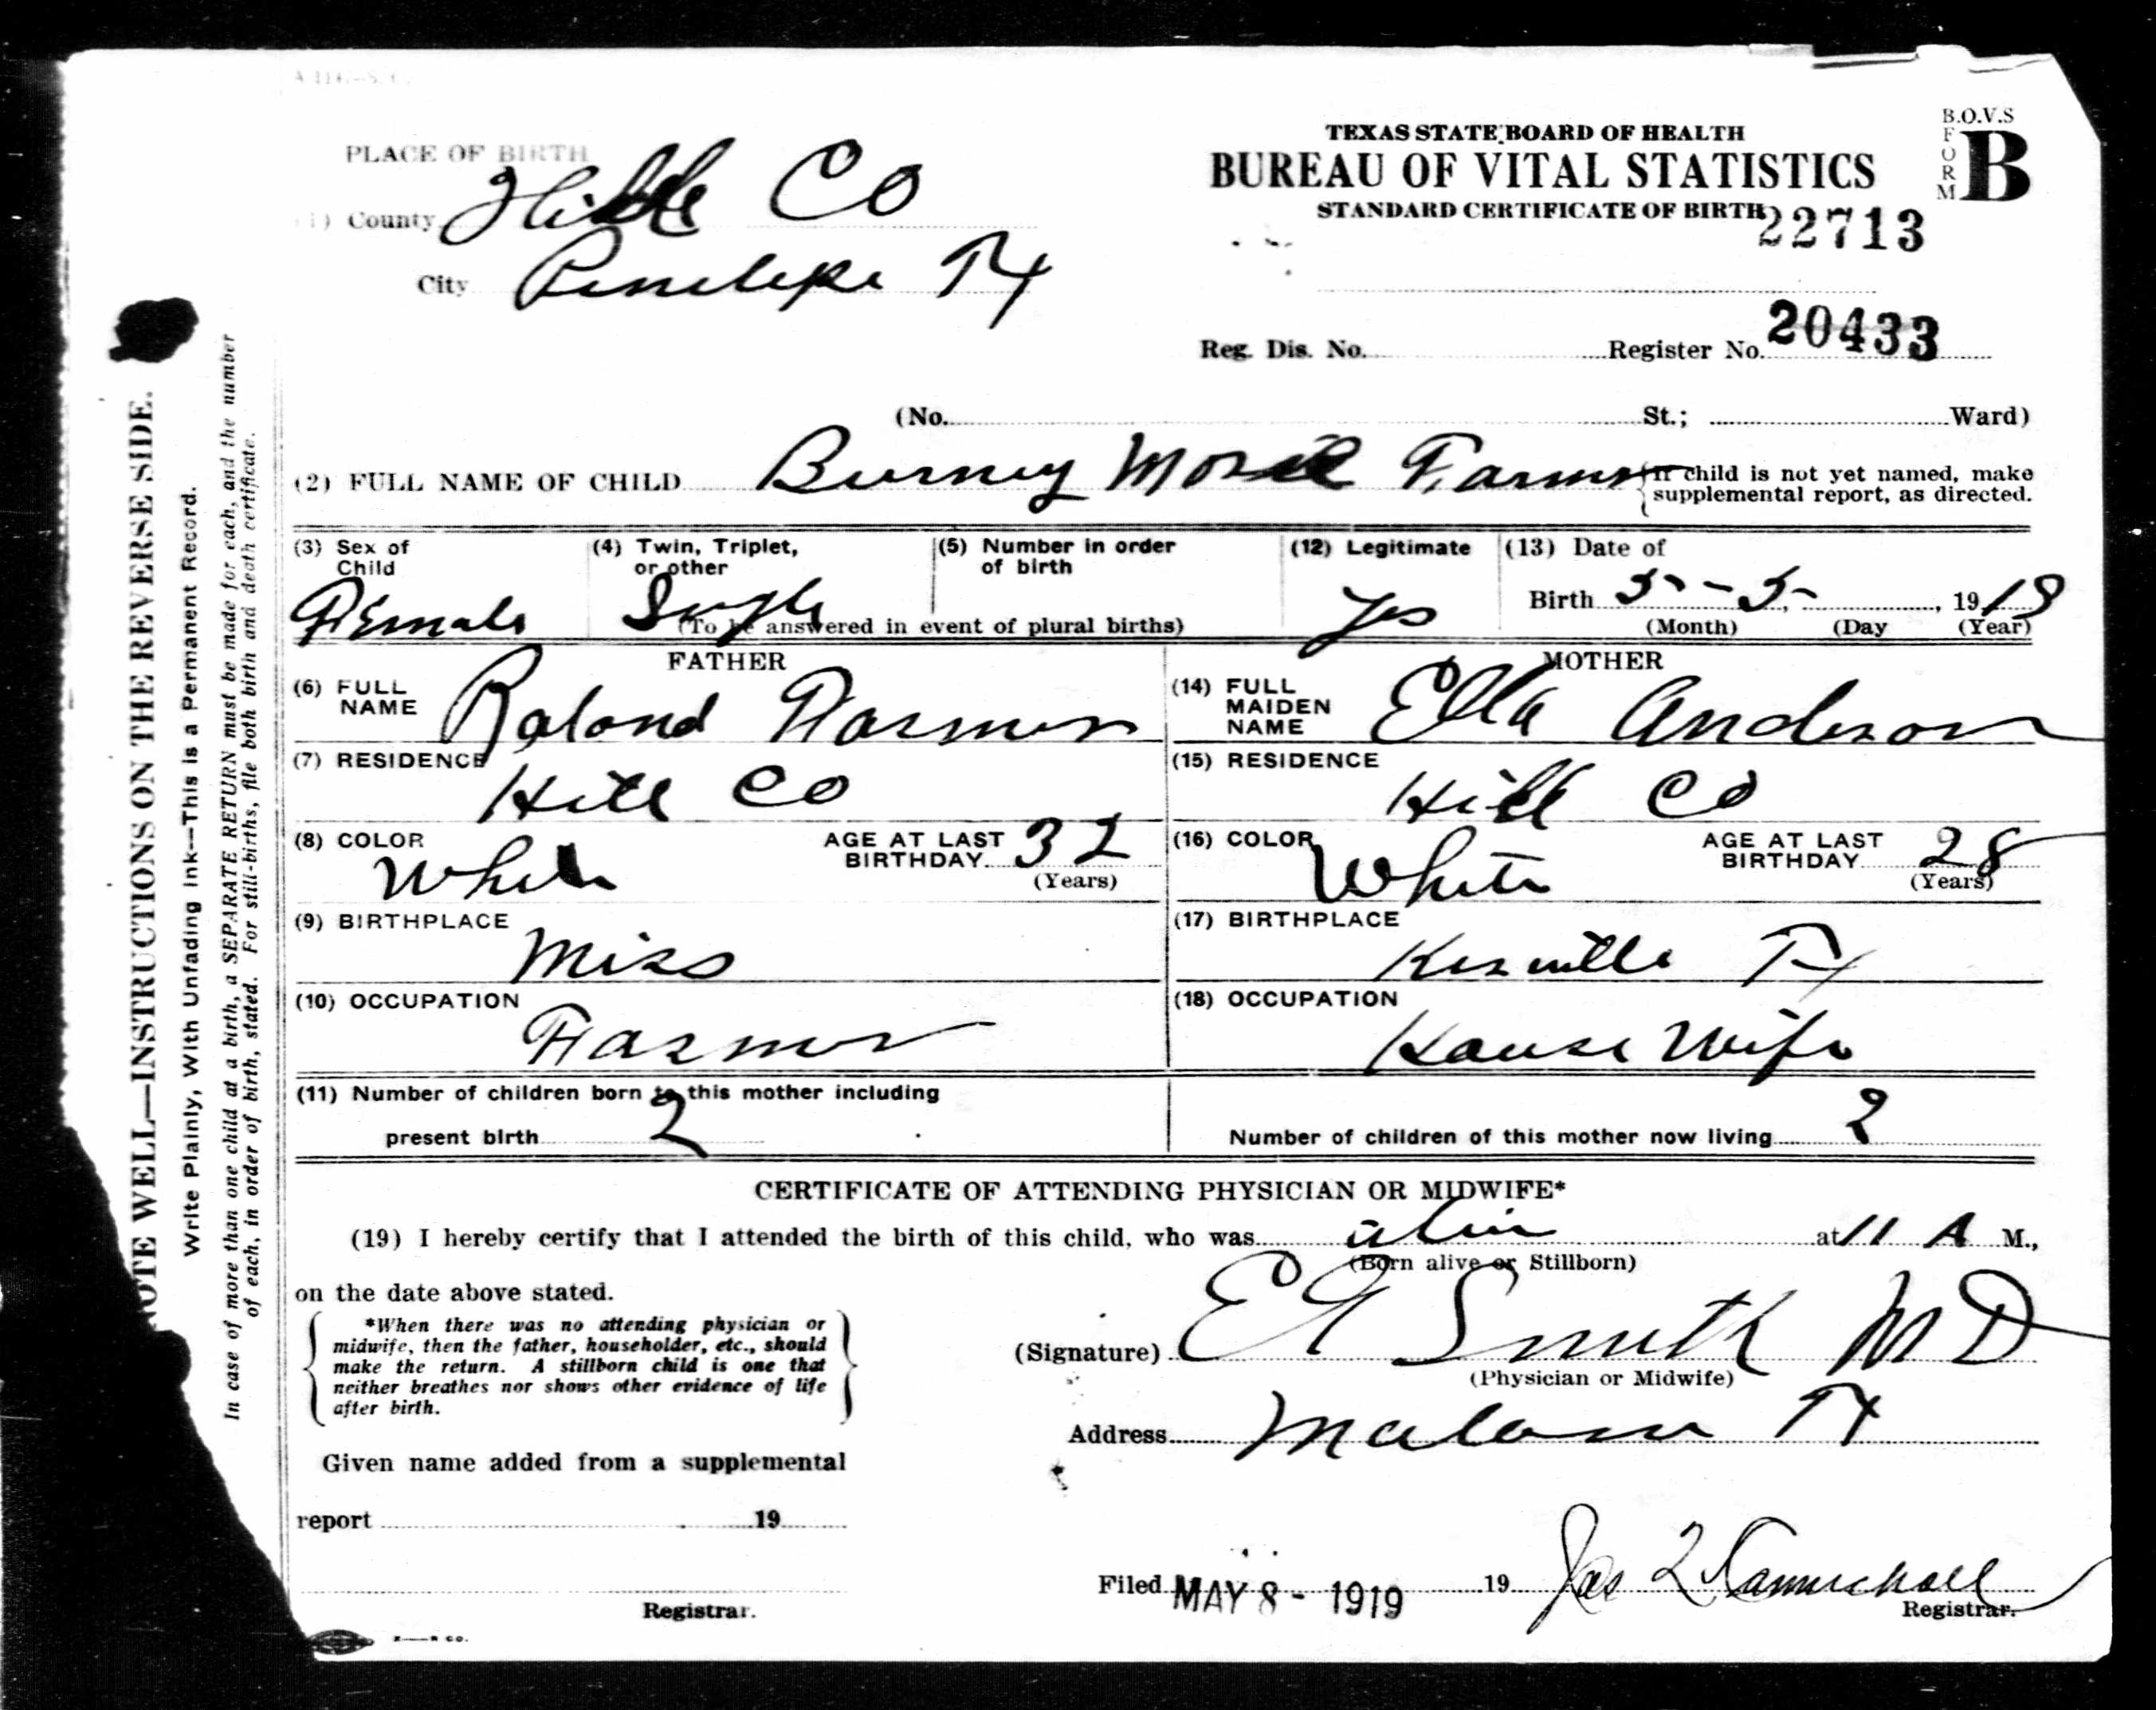 PLACE OF BIRTH
(1) County Hill Co
City Penelope Tx
TEXAS STATE BOARD OF HEALTH
BUREAU OF VITAL STATISTICS
STANDARD CERTIFICATE OF BIRTH
B.O.V.S
FORM B
22713
Reg. Dis. No. Register No. 20433
(No. St.; Ward)
(2) FULL NAME OF CHILD Burney Farmer
If child is not yet named, make
supplemental report, as directed.
(3) Sex of Child Female
(4) Twin, Triplet, or other Single
(5) Number in order of birth
(To be answered in event of plural births)
(12) Legitimate Yes
(13) Date of
Birth 5 - 5 - , 1919
(Month) (Day (Year)
FATHER
(6) FULL NAME Roland Farmer
(7) RESIDENCE Hill Co
(8) COLOR White AGE AT LAST BIRTHDAY 32
(Years)
(9) BIRTHPLACE Miss
(10) OCCUPATION Farmer
MOTHER
(14) FULL MAIDEN NAME Ella Anderson
(15) RESIDENCE Hill Co
(16) COLOR White AGE AT LAST BIRTHDAY 28
(Years)
(17) BIRTHPLACE Tx
(18) OCCUPATION House Wife
(11) Number of children born to this mother including
present birth 2
Number of children of this mother now living 2
CERTIFICATE OF ATTENDING PHYSICIAN OR MIDWIFE*
(19) I hereby certify that I attended the birth of this child, who was alive at 11 A M.,
(Born alive or Stillborn)
on the date above stated.
*When there was no attending physician or
midwife, then the father, householder, etc., should
make the return. A stillborn child is one that
neither breathes nor shows other evidence of life
after birth.
(Signature) Smith MD
(Physician or Midwife)
Address Malone Tx
Given name added from a supplemental
report 19
Registrar.
Filed MAY 8 - 1919 19 Jas
Registrar.
NOTE WELL—INSTRUCTIONS ON THE REVERSE SIDE.
Write Plainly, With Unfading Ink—This is a Permanent Record.
In case of more than one child at a birth, a SEPARATE RETURN must be made for each, and the number
of each, in order of birth, stated. For still-births, file both birth and death certificate.